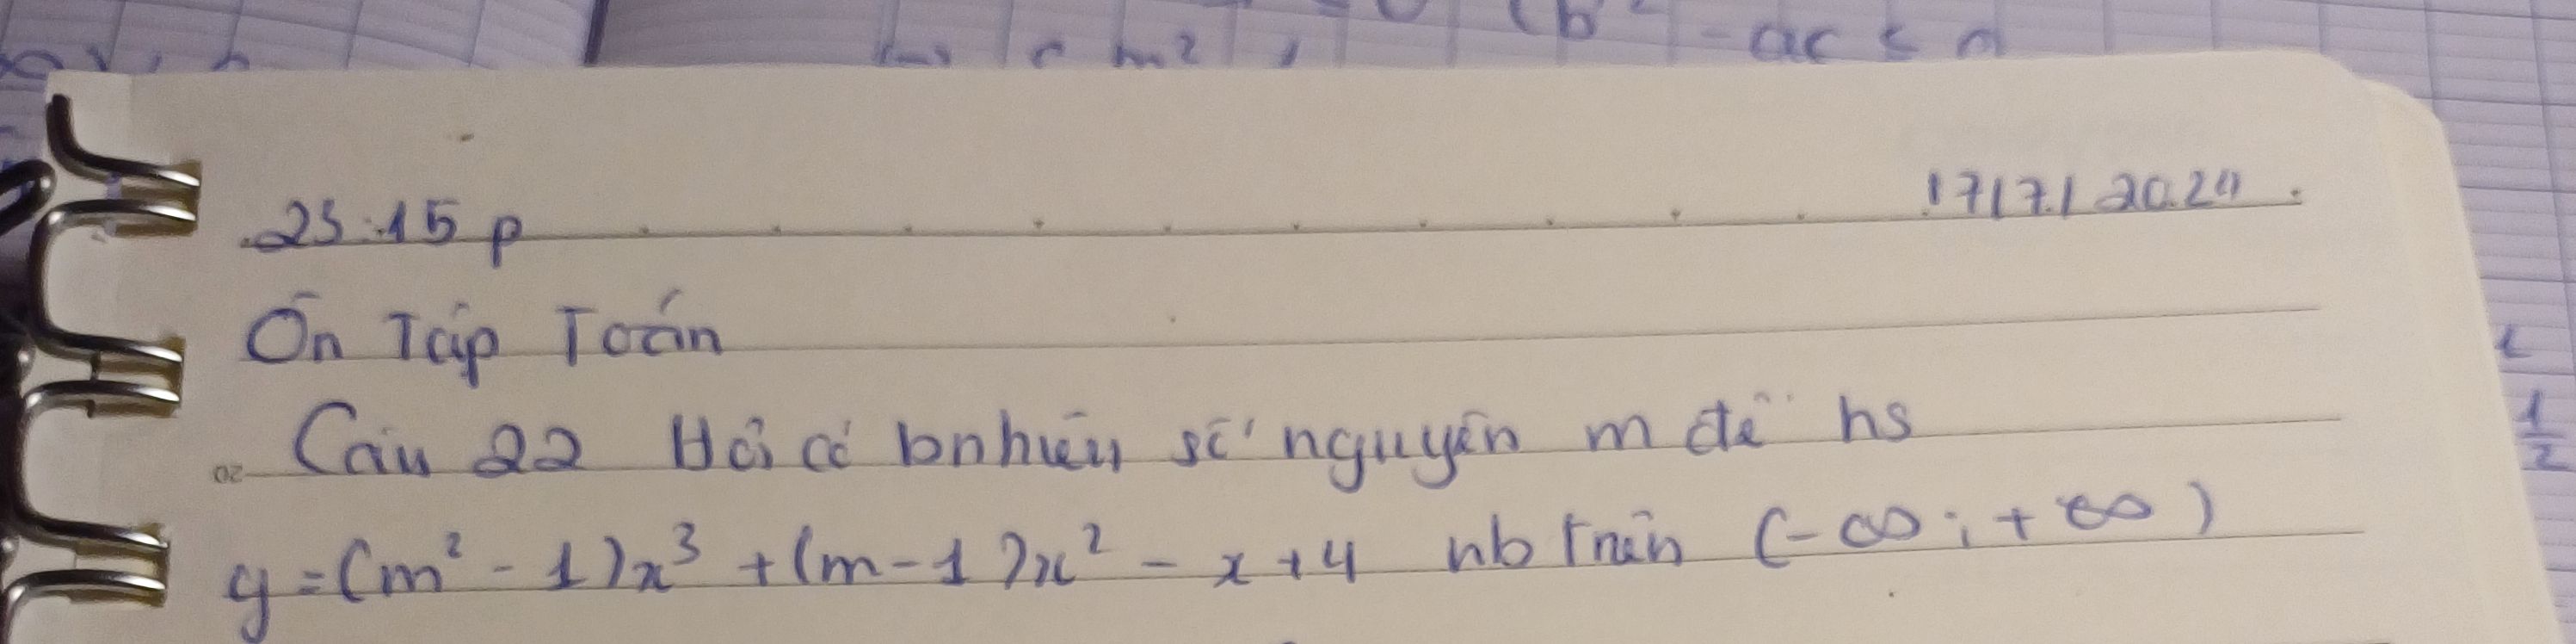 (b² - ac ≤
m²
23:15 p
17/7/2024
Ôn Tập Toán
Câu 22 Hỏi có bnhiêu số nguyên m để hs
y = (m² - 1)x³ + (m - 1)x² - x + 4 nb trên (-∞; +∞)
1/2